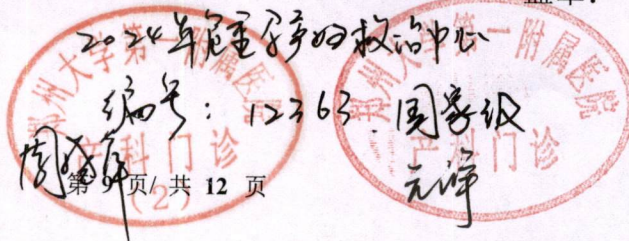 盖章:
2024年危重孕产妇救治中心
编号: 12363 国家级
郑州大学第一附属医院
产科门诊
(2)
郑州大学第一附属医院
产科门诊
第 9 页/ 共 12 页